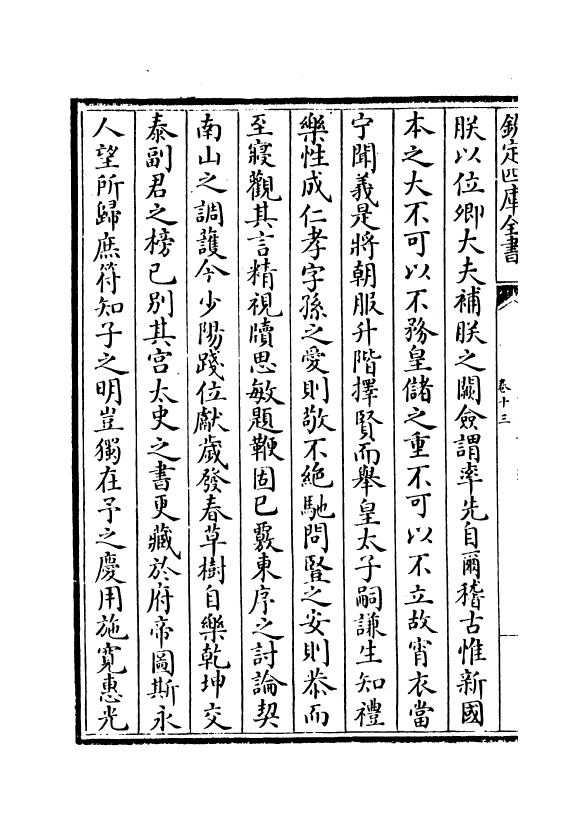 欽定四庫全書
卷十三
朕以位卿大夫補朕之闕僉謂率先自爾稽古惟新國
本之大不可以不務皇儲之重不可以不立故宵衣當
宁聞義是將朝服升階擇賢而舉皇太子嗣謙生知禮
樂性成仁孝字孫之愛則敬不絶馳問豎之安則恭而
至寢觀其言精視牘思敏題鞭固已覈東序之討論契
南山之調䕶今少陽踐位獻歲發春草樹自樂乾坤交
泰副君之榜已别其宫太史之書更藏於府帝圖斯永
人望所歸庶符知子之明豈獨在予之慶用施寛惠光